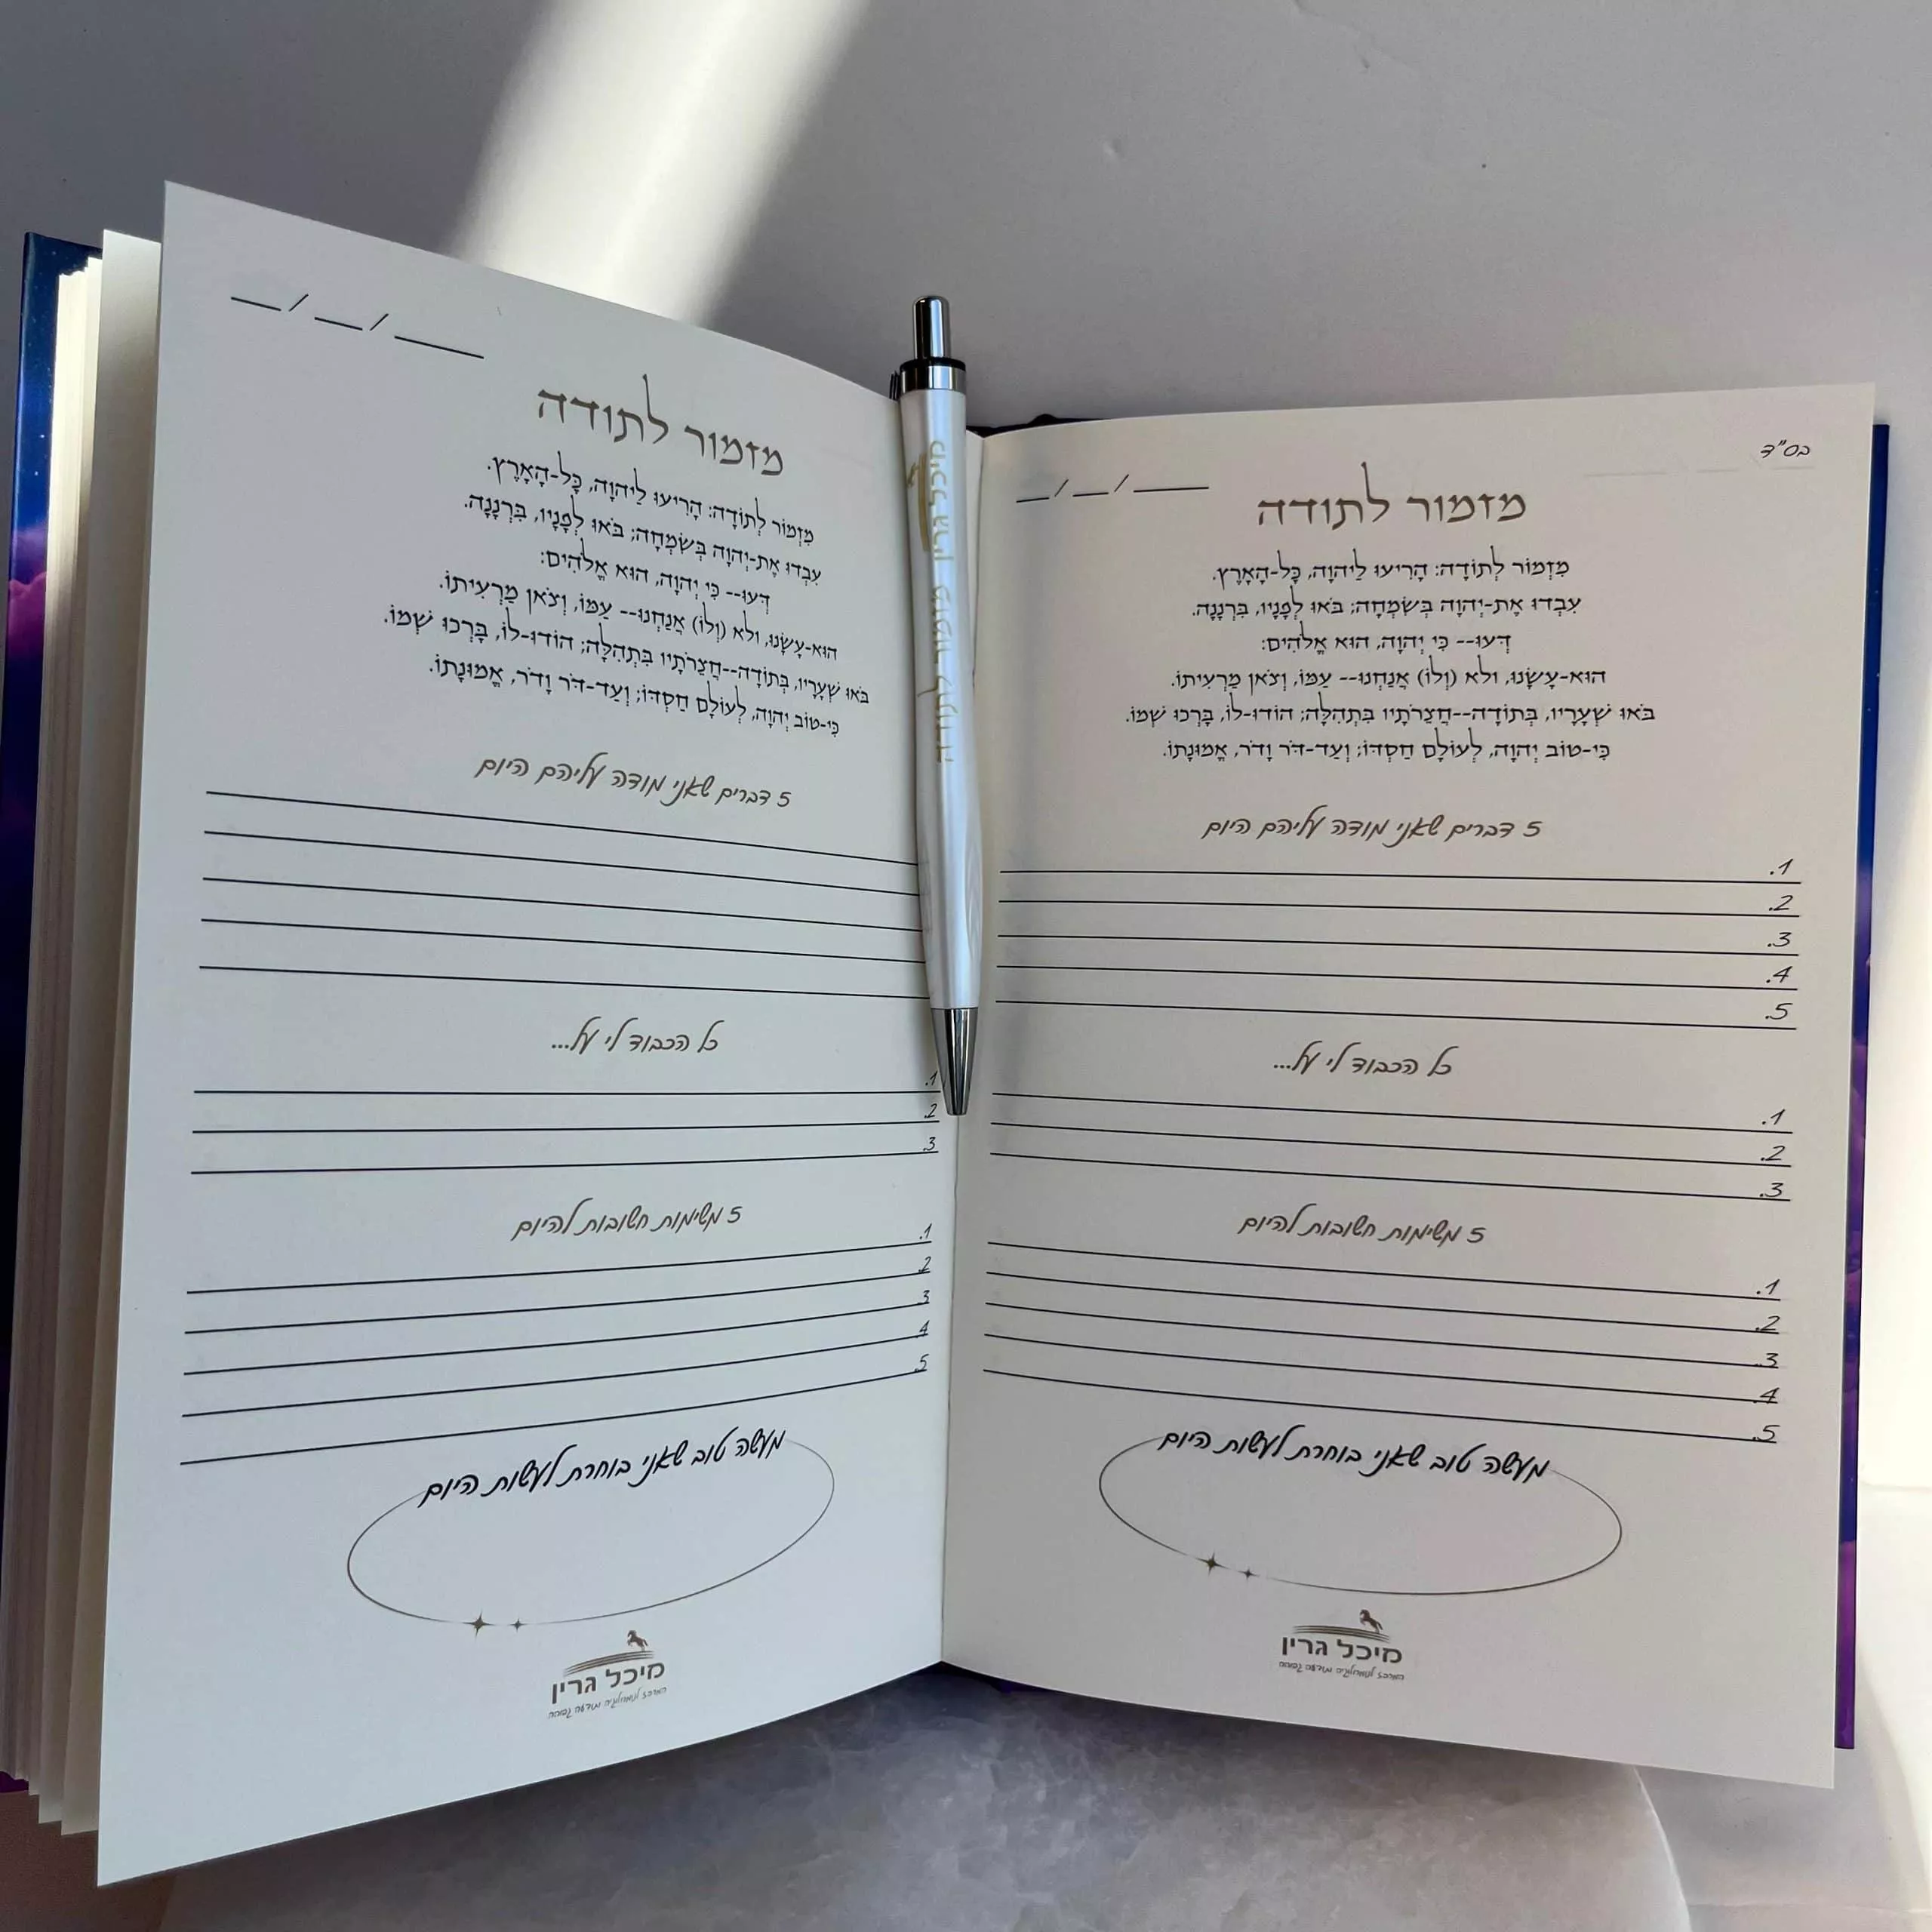 בס"ד
__/__/____
מזמור לתודה
מִזְמוֹר לְתוֹדָה: הָרִיעוּ לַיהוָה, כָּל-הָאָרֶץ.
עִבְדוּ אֶת-יְהוָה בְּשִׂמְחָה; בֹּאוּ לְפָנָיו, בִּרְנָנָה.
דְּעוּ-- כִּי יְהוָה, הוּא אֱלֹהִים:
הוּא-עָשָׂנוּ, ולא (וְלוֹ) אֲנַחְנוּ-- עַמּוֹ, וְצֹאן מַרְעִיתוֹ.
בֹּאוּ שְׁעָרָיו, בְּתוֹדָה--חֲצֵרֹתָיו בִּתְהִלָּה; הוֹדוּ-לוֹ, בָּרְכוּ שְׁמוֹ.
כִּי-טוֹב יְהוָה, לְעוֹלָם חַסְדּוֹ; וְעַד-דֹּר וָדֹר, אֱמוּנָתוֹ.
5 דברים שאני מודה עליהם היום
1.
2.
3.
4.
5.
כל הכבוד לי על...
1.
2.
3.
5 משימות חשובות להיום
1.
2.
3.
4.
5.
מעשה טוב שאני בוחרת לעשות היום
מיכל גרין
המרכז לנומרולוגיה ותודעה גבוהה
מיכל גרין מזמור לתודה
__/__/____
מזמור לתודה
מִזְמוֹר לְתוֹדָה: הָרִיעוּ לַיהוָה, כָּל-הָאָרֶץ.
עִבְדוּ אֶת-יְהוָה בְּשִׂמְחָה; בֹּאוּ לְפָנָיו, בִּרְנָנָה.
דְּעוּ-- כִּי יְהוָה, הוּא אֱלֹהִים:
הוּא-עָשָׂנוּ, ולא (וְלוֹ) אֲנַחְנוּ-- עַמּוֹ, וְצֹאן מַרְעִיתוֹ.
בֹּאוּ שְׁעָרָיו, בְּתוֹדָה--חֲצֵרֹתָיו בִּתְהִלָּה; הוֹדוּ-לוֹ, בָּרְכוּ שְׁמוֹ.
כִּי-טוֹב יְהוָה, לְעוֹלָם חַסְדּוֹ; וְעַד-דֹּר וָדֹר, אֱמוּנָתוֹ.
5 דברים שאני מודה עליהם היום
כל הכבוד לי על...
1.
2.
3.
5 משימות חשובות להיום
1.
2.
3.
4.
5.
מעשה טוב שאני בוחרת לעשות היום
מיכל גרין
המרכז לנומרולוגיה ותודעה גבוהה